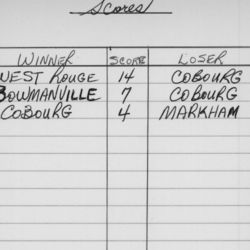 Scores
WINNER SCORE LOSER
WEST ROUGE 14 COBOURG
BOWMANVILLE 7 COBOURG
COBOURG 4 MARKHAM